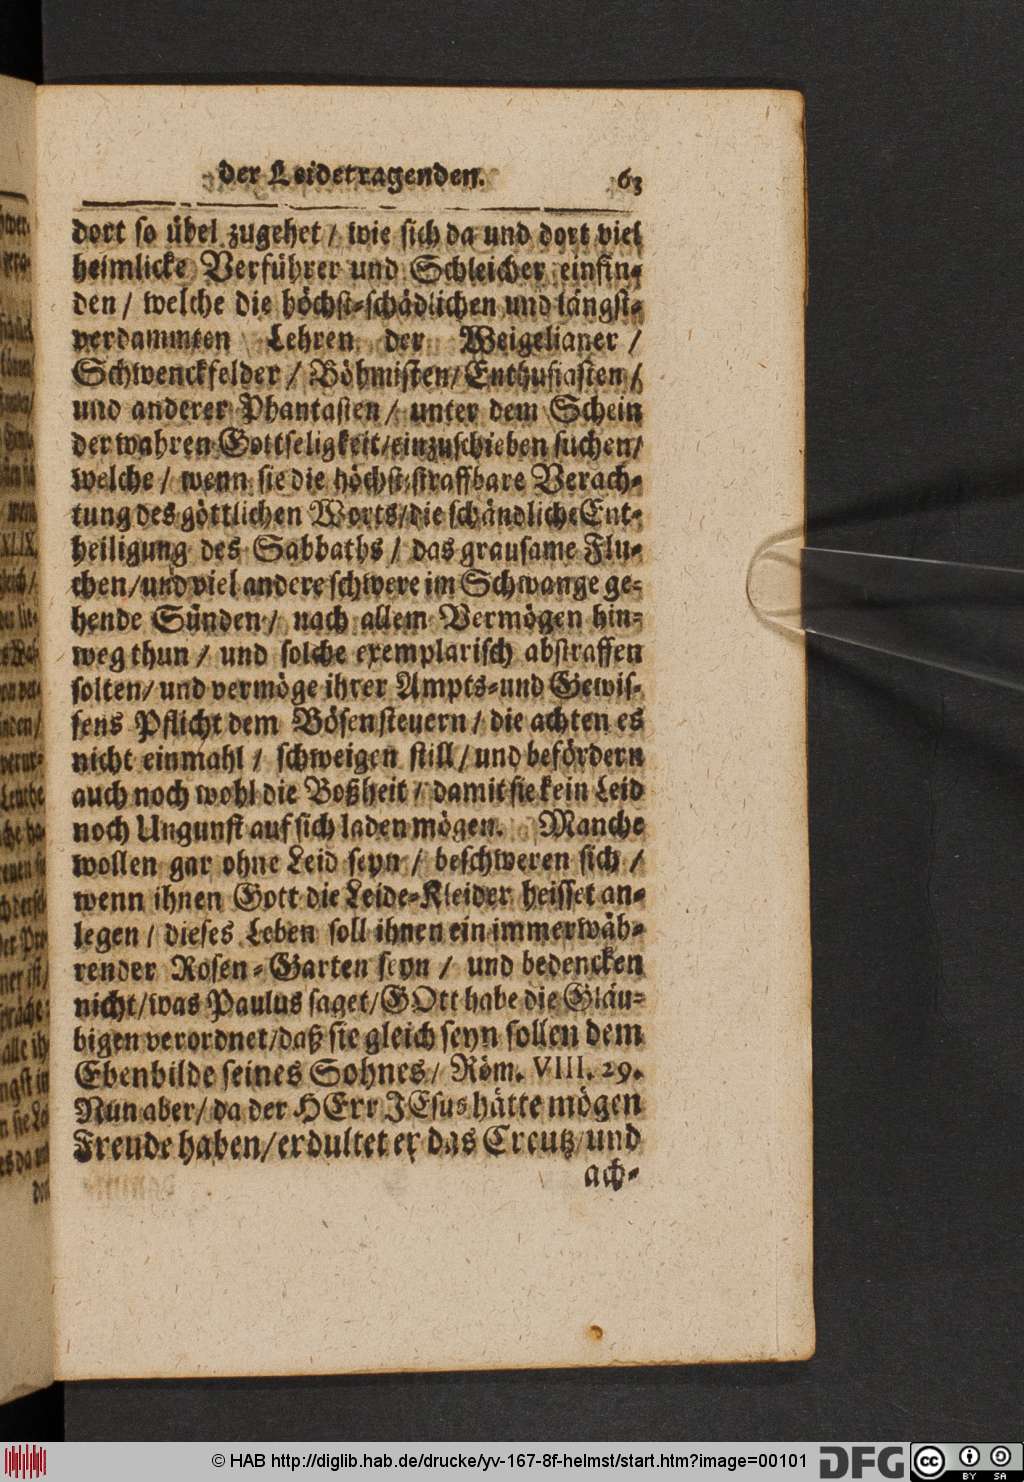 der Leidetragenden. 63
dort so übel zugehet / wie sich da und dort viel
heimlicke Verführer und Schleicher einfin-
den / welche die höchst-schädlichen und längst-
verdammten Lehren der Weigelianer /
Schwenckfelder / Böhmisten / Enthusiasten /
und anderer Phantasten / unter dem Schein
der wahren Gottseligkeit / einzuschieben suchen /
welche / wenn sie die höchst-straffbare Verach-
tung des göttlichen Worts / die schändliche Ent-
heiligung des Sabbaths / das grausame Flu-
chen / und viel andere schwere im Schwange ge-
hende Sünden / nach allem Vermögen hin-
weg thun / und solche exemplarisch abstraffen
solten / und vermöge ihrer Ampts-und Gewis-
sens Pflicht dem Bösen steuern / die achten es
nicht einmahl / schweigen still / und befördern
auch noch wohl die Boßheit / damit sie kein Leid
noch Ungunst auf sich laden mögen. Manche
wollen gar ohne Leid seyn / beschweren sich /
wenn ihnen Gott die Leide-Kleider heisset an-
legen / dieses Leben soll ihnen ein immerwäh-
render Rosen-Garten seyn / und bedencken
nicht / was Paulus saget / GOtt habe die Gläu-
bigen verordnet / daß sie gleich seyn sollen dem
Ebenbilde seines Sohnes / Röm. VIII. 29.
Nun aber / da der HErr JEsus hätte mögen
Freude haben / erdultet er das Creutz / und
ach-
© HAB http://diglib.hab.de/drucke/yv-167-8f-helmst/start.htm?image=00101
DFG
cc BY SA